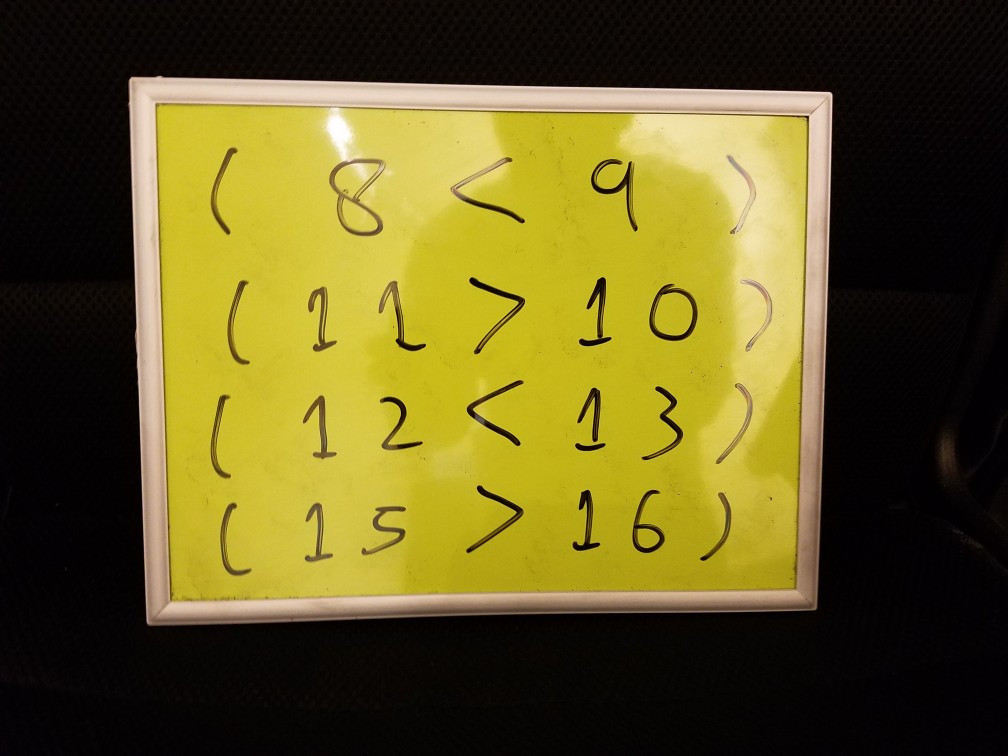 ( 8 < 9 )
( 11 > 10 )
( 12 < 13 )
( 15 > 16 )